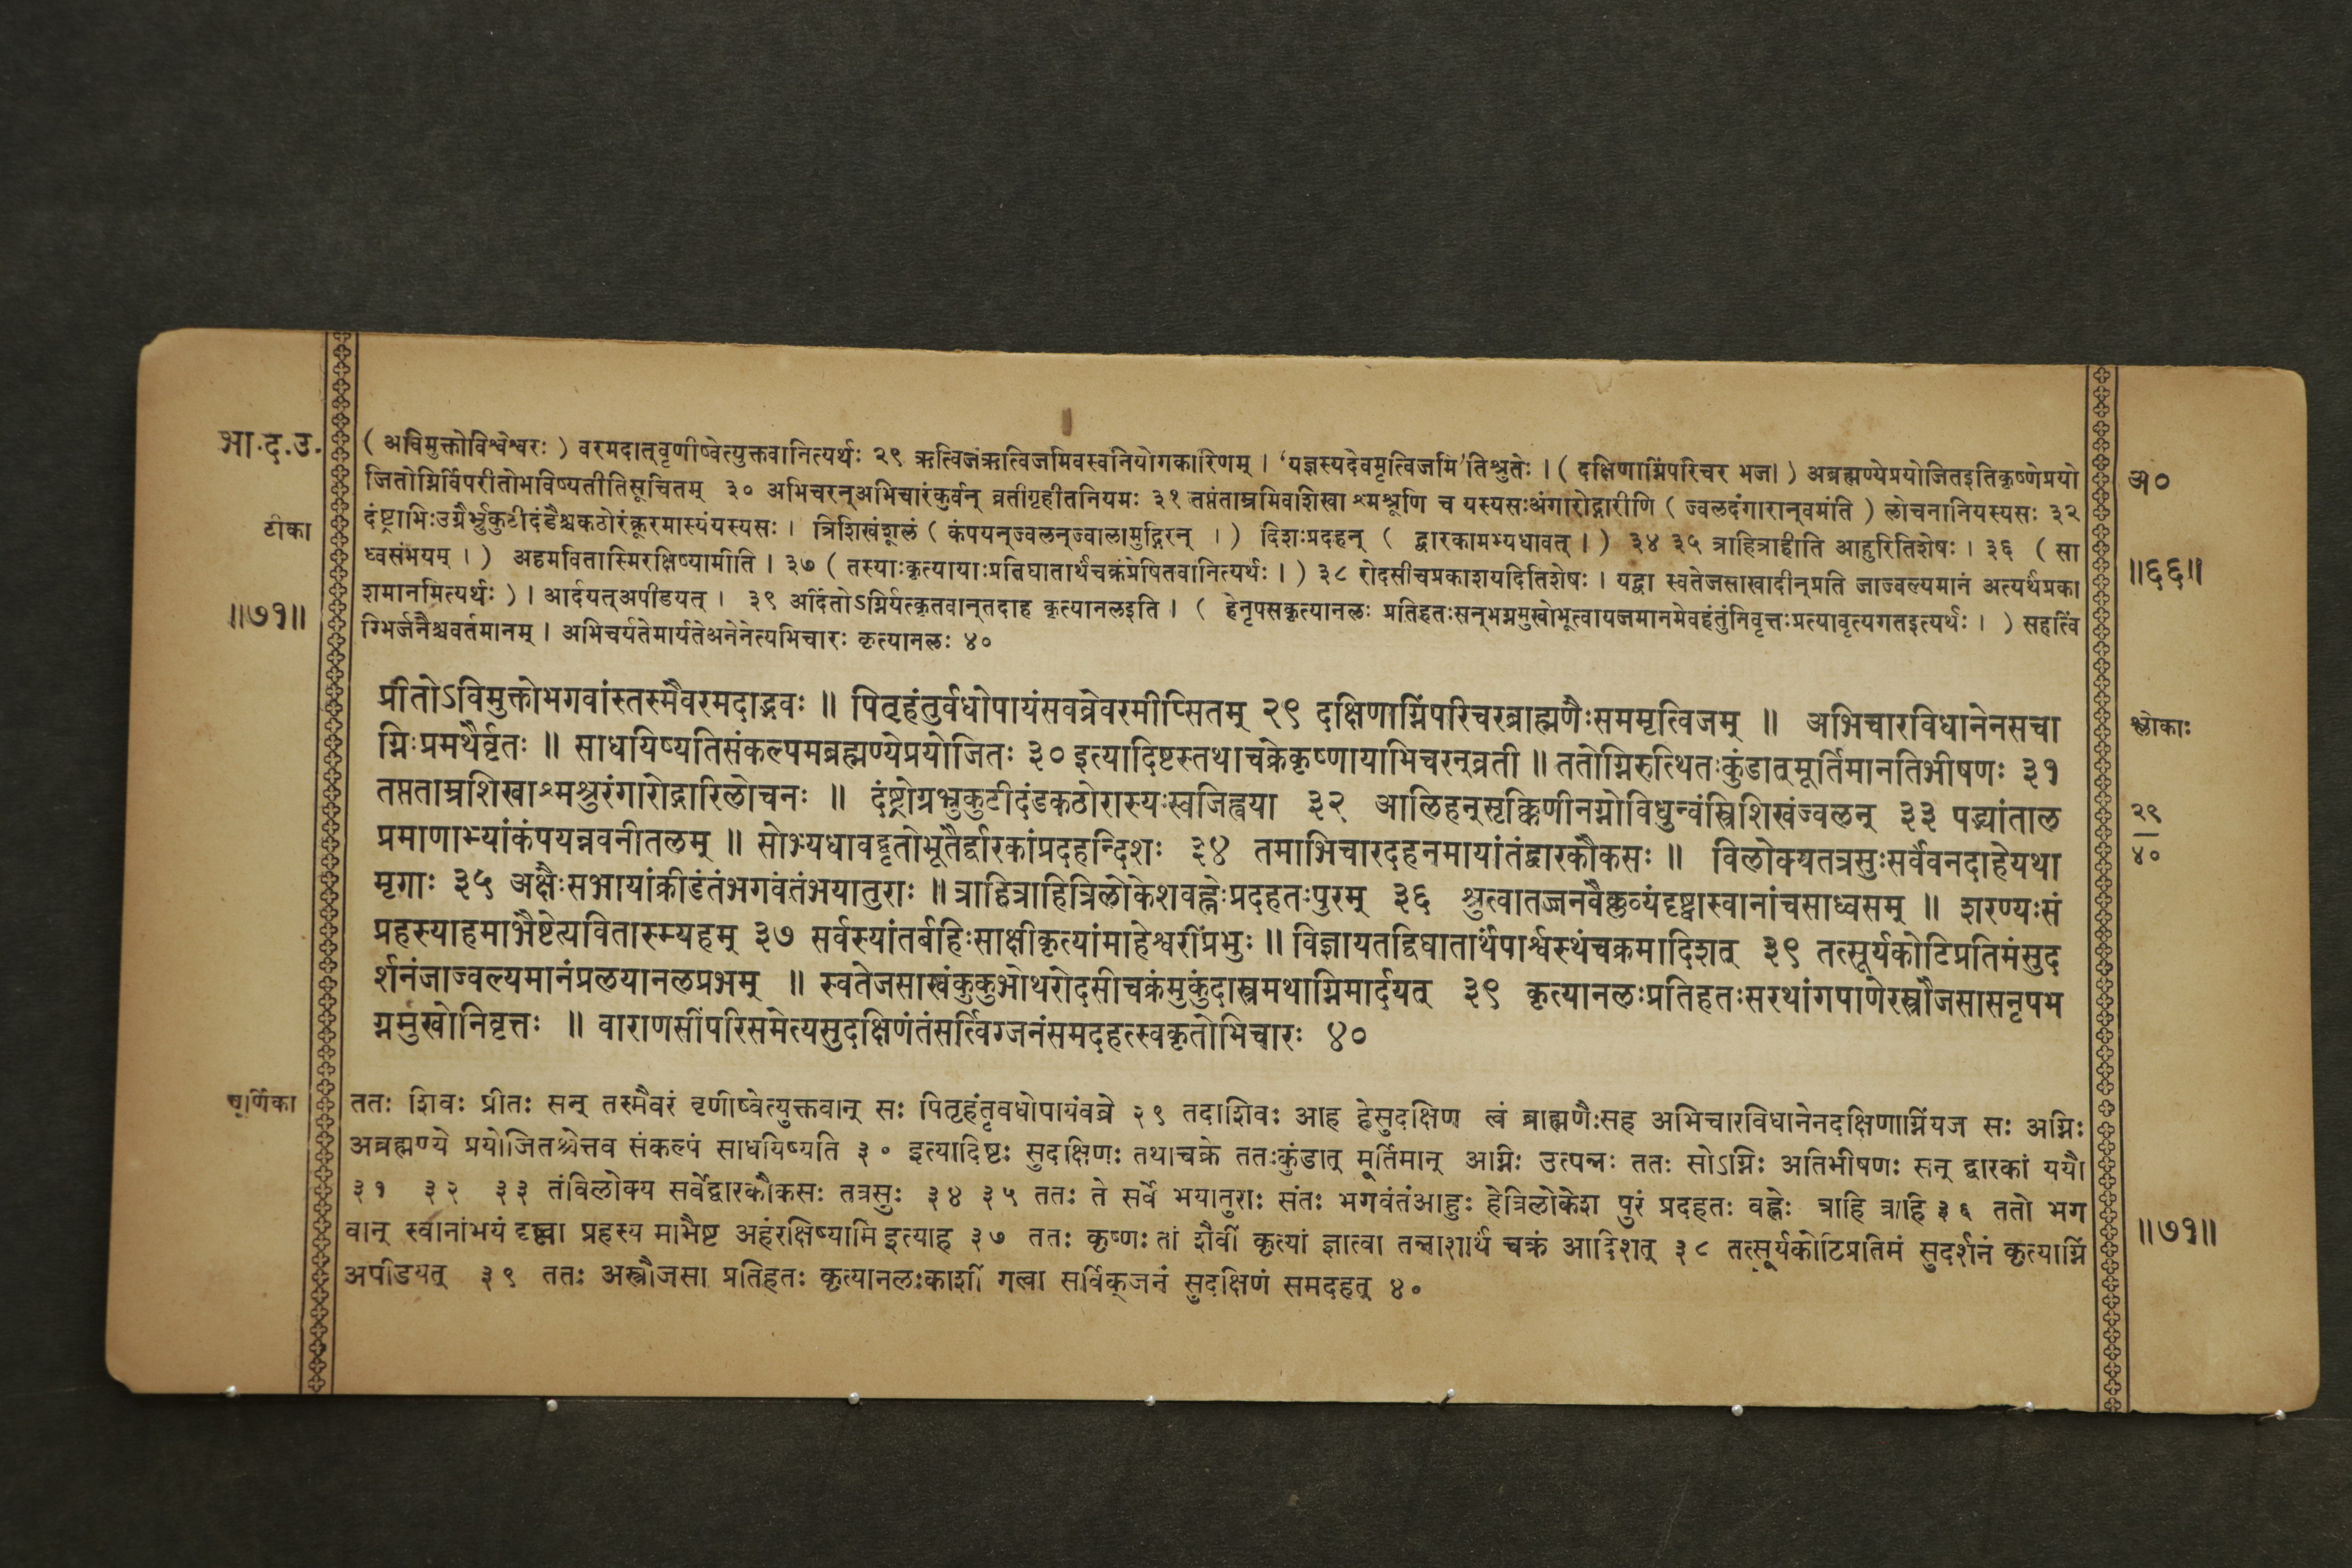 भा.द.उ.
टीका
॥७१॥
(अविमुक्तोविश्वेश्वरः) वरमदात्वृणीष्वेत्युक्तवानित्यर्थः २९ ऋत्विजंऋत्विजमिवस्वनियोगकारिणम् । ‘यज्ञस्यदेवमृत्विजमि’तिश्रुतेः । (दक्षिणाग्निंपरिचर भज।) अब्रह्मण्येप्रयोजितइतिकृष्णेप्रयो
जितोग्निर्विपरीतोभविष्यतीतिसूचितम् ३० अभिचरन्अभिचारंकुर्वन् व्रतीगृहीतनियमः ३१ तप्तंताम्रमिवशिखा श्मश्रूणि च यस्यसःअंगारोद्गारीणि (ज्वलदंगारान्वमंति) लोचनानियस्यसः ३२
दंष्ट्राभिःउग्रैर्भ्रुकुटीदंडैश्चकठोरंक्रूरमास्यंयस्यसः । त्रिशिखंशूलं (कंपयन्ज्वलन्ज्वालामुद्गिरन् ।) दिशःप्रदहन् ( द्वारकामभ्यधावत् ।) ३४ ३५ त्राहित्राहीति आहुरितिशेषः । ३६ (सा
ध्वसंभयम् ।) अहमवितास्मिरक्षिष्यामीति । ३७ (तस्याःकृत्यायाःप्रतिघातार्थंचक्रंप्रेषितवानित्यर्थः ।) ३८ रोदसीचप्रकाशयदितिशेषः । यद्वा स्वतेजसाखादीन्प्रति जाज्वल्यमानं अत्यर्थप्रका
शमानमित्यर्थः) । आर्दयत्अपीडयत् । ३९ अर्दितोऽग्निर्यत्कृतवान्तदाह कृत्यानलइति । (हेनृपसकृत्यानलः प्रतिहतःसन्भग्नमुखोभूत्वायजमानमेवहंतुंनिवृत्तःप्रत्यावृत्यगतइत्यर्थः ।) सहर्त्वि
ग्भिर्जनैश्चवर्तमानम् । अभिचर्यतेमार्यतेअनेनेत्यभिचारः कृत्यानलः ४०
प्रीतोऽविमुक्तोभगवांस्तस्मैवरमदाद्भवः ॥ पितृहंतुर्वधोपायंसवव्रेवरमीप्सितम् २९ दक्षिणाग्निंपरिचरब्राह्मणैःसममृत्विजम् ॥ अभिचारविधानेनसचा
ग्निःप्रमथैर्वृतः ॥ साधयिष्यतिसंकल्पमब्रह्मण्येप्रयोजितः ३० इत्यादिष्टस्तथाचक्रेकृष्णायाभिचरन्व्रती ॥ ततोग्निरुत्थितःकुंडात्मूर्तिमानतिभीषणः ३१
तप्तताम्रशिखाश्मश्रुरंगारोद्गारिलोचनः ॥ दंष्ट्रोग्रभ्रुकुटीदंडकठोरास्यःस्वजिह्वया ३२ आलिहन्सृक्किणीनग्नोविधुन्वंस्त्रिशिखंज्वलन् ३३ पद्भ्यांताल
प्रमाणाभ्यांकंपयन्नवनीतलम् ॥ सोभ्यधावद्वृतोभूतैर्द्वारकांप्रदहन्दिशः ३४ तमाभिचारदहनमायांतंद्वारकौकसः ॥ विलोक्यतत्रसुःसर्वेवनदाहेयथा
मृगाः ३५ अक्षैःसभायांक्रीडंतंभगवंतंभयातुराः ॥ त्राहित्राहित्रिलोकेशवह्नेःप्रदहतःपुरम् ३६ श्रुत्वातज्जनवैक्लव्यंदृष्ट्वास्वानांचसाध्वसम् ॥ शरण्यःसं
प्रहस्याहमाभैष्टेत्यवितास्म्यहम् ३७ सर्वस्यांतर्बहिःसाक्षीकृत्यांमाहेश्वरींप्रभुः ॥ विज्ञायतद्विघातार्थंपार्श्वस्थंचक्रमादिशत् ३९ तत्सूर्यकोटिप्रतिमंसुद
र्शनंजाज्वल्यमानंप्रलयानलप्रभम् ॥ स्वतेजसाखंककुभोथरोदसीचक्रंमुकुंदास्त्रमथाग्निमार्दयत् ३९ कृत्यानलःप्रतिहतःसरथांगपाणेरस्त्रौजसासनृपभ
ग्नमुखोनिवृत्तः ॥ वाराणसींपरिसमेत्यसुदक्षिणंतंसर्त्विग्जनंसमदहत्स्वकृतोभिचारः ४०
चूर्णिका
ततः शिवः प्रीतः सन् तस्मैवरं वृणीष्वेत्युक्तवान् सः पितृहंतृवधोपायंवव्रे २९ तदाशिवः आह हेसुदक्षिण त्वं ब्राह्मणैःसह अभिचारविधानेनदक्षिणाग्निंयज सः अग्निः
अब्रह्मण्ये प्रयोजितश्चेत्तव संकल्पं साधयिष्यति ३० इत्यादिष्टः सुदक्षिणः तथाचक्रे ततःकुंडात् मूर्तिमान् अग्निः उत्पन्नः ततः सोऽग्निः अतिभीषणः सन् द्वारकां ययौ
३१ ३२ ३३ तंविलोक्य सर्वेद्वारकौकसः तत्रसुः ३४ ३५ ततः ते सर्वे भयातुराः संतः भगवंतंआहुः हेत्रिलोकेश पुरं प्रदहतः वह्नेः त्राहि त्राहि ३६ ततो भग
वान् स्वानांभयं दृष्ट्वा प्रहस्य माभैष्ट अहंरक्षिष्यामि इत्याह ३७ ततः कृष्णः तां शैवीं कृत्यां ज्ञात्वा तन्नाशार्थं चक्रं आदिशत् ३८ तत्सूर्यकोटिप्रतिमं सुदर्शनं कृत्याग्निं
अपीडयत् ३९ ततः अस्त्रौजसा प्रतिहतः कृत्यानलःकाशीं गत्वा सर्त्विक्जनं सुदक्षिणं समदहत् ४०
अ०
॥६६॥
श्लोकाः
२९
४०
॥७१॥